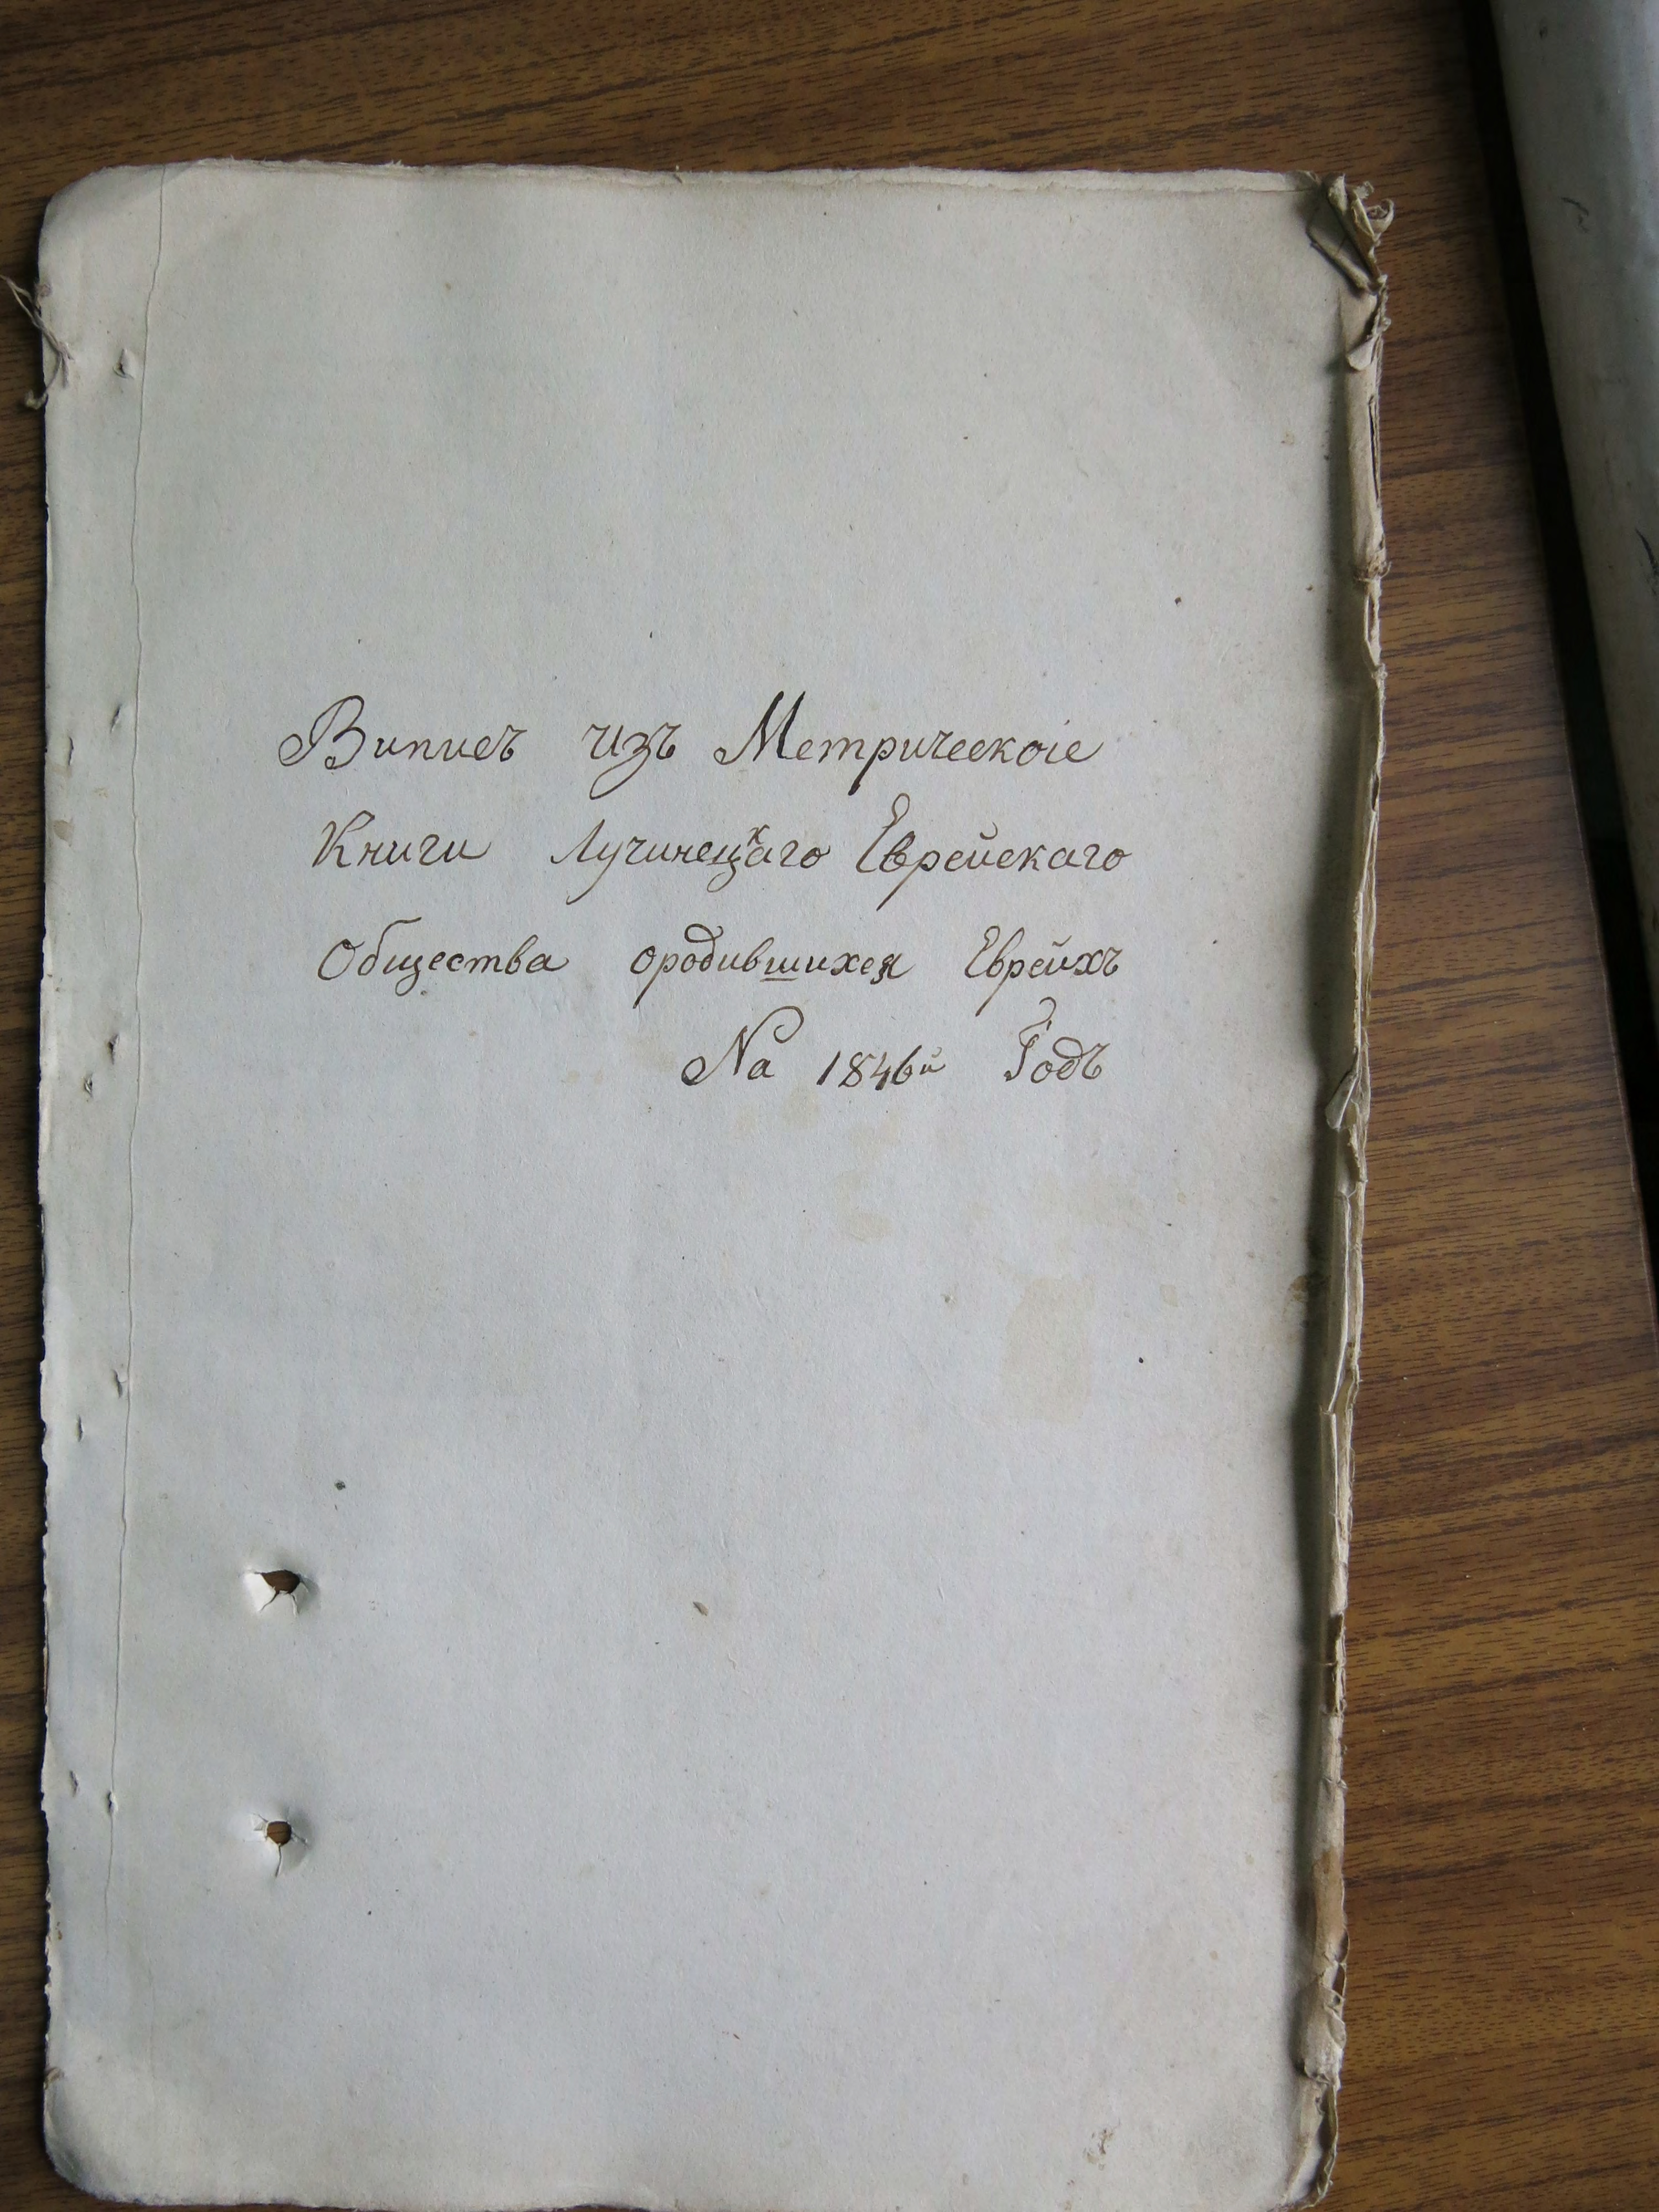 Виписъ изъ Метрическоіе
Книги Лучинецкаго Еврейскаго
Общества ородившихся Еврейхъ
На 1846й Годъ